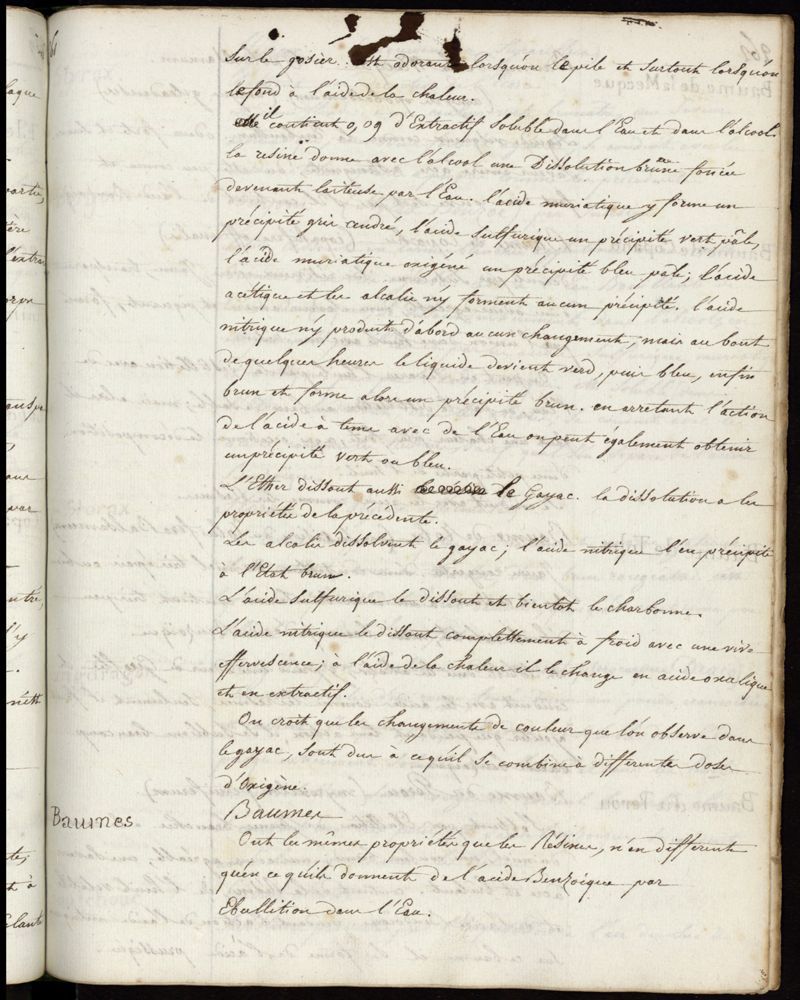 Sur le gosier. est odorant lorsqu'on le pile et surtout lorsqu'on
le fond à l'aide de la chaleur.
il contient 0,09 d'Extractif soluble dans l'Eau et dans l'alcool.
la resine donne avec l'alcool une Dissolution brune foncée
devenant laiteuse par l'Eau. l'acide muriatique y forme un
précipité gris cendré, l'acide sulfurique un précipité vert pâle,
l'acide muriatique oxigéné un précipité bleu pâle; l'acide
acétique et les alcalis n'y forment aucun précipité. l'acide
nitrique n'y produit d'abord aucun changement, mais au bout
de quelques heures le liquide devient verd, puis bleu, enfin
brun et forme alors un précipité brun. en arretant l'action
de l'acide a tems avec de l'Eau on peut également obtenir
un précipité vert ou bleu.
L'Ether dissout aussi le Gayac. la dissolution a les
propriétés de la précédente.
Les alcalis dissolvent le gayac; l'acide nitrique l'en précipite
à l'Etat brun.
L'acide Sulfurique le dissout et bientot le charbonne.
L'acide nitrique le dissout complettement à froid avec une vive
effervescence; à l'aide de la chaleur il le change en acide oxalique
et en extractif.
On croit que les changements de couleur que l'on observe dans
le gayac, sont dus à ce qu'il se combine à differentes doses
d'Oxigène.
Baumes
Baumes
Ont les mêmes propriétés que les Résines, n'en different
qu'en ce qu'ils donnent de l'acide Benzoique par
Ebullition dans l'Eau.